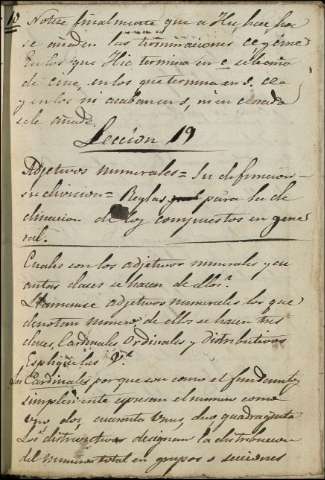 10
Notese finalmente que a Hic, hec hoc
se añaden las terminaciones
en los que Hic termina en c
de cine, en los que termina en s. ce
y en los ni acaban en s, ni en c nada
se le añade.
Leccion 19
Adjetivos numerales = Su definicion =
su division = Reglas para la de
clinacion de los compuestos en gene
ral.
Cuales son los adjetivos numerales y en
cuantas clases se hacen de ellos?
Llamanse adjetivos numerales los que
denotan numero de ellos se hacen tres
clases, Cardinales Ordinales y distributivos
Espliquelas V.
Los Cardinales por que son como el fundamto
simplemente espresan el numero como
uno dos cuarenta unus, duo quadraginta
Los distributivos designan la distribucion
del numero total en grupos o secciones